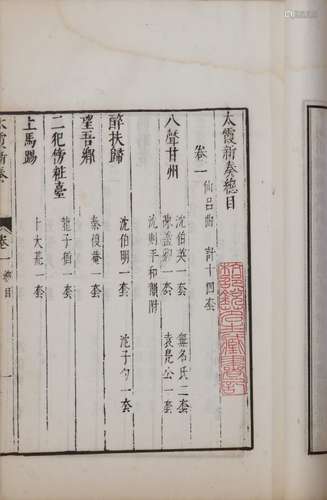 太霞新奏總目
卷一 仙呂曲 計十四套
八聲甘州
沈伯英一套 無名氏二套
陳藎卿一套 袁晁公一套
沈則平和韻附
醉扶歸
沈伯明一套 沈子勺一套
望吾鄉
秦復菴一套
二犯傍粧臺
龍子猶一套
上馬踢
卜大荒一套
太霞新奏 卷一 總目 一